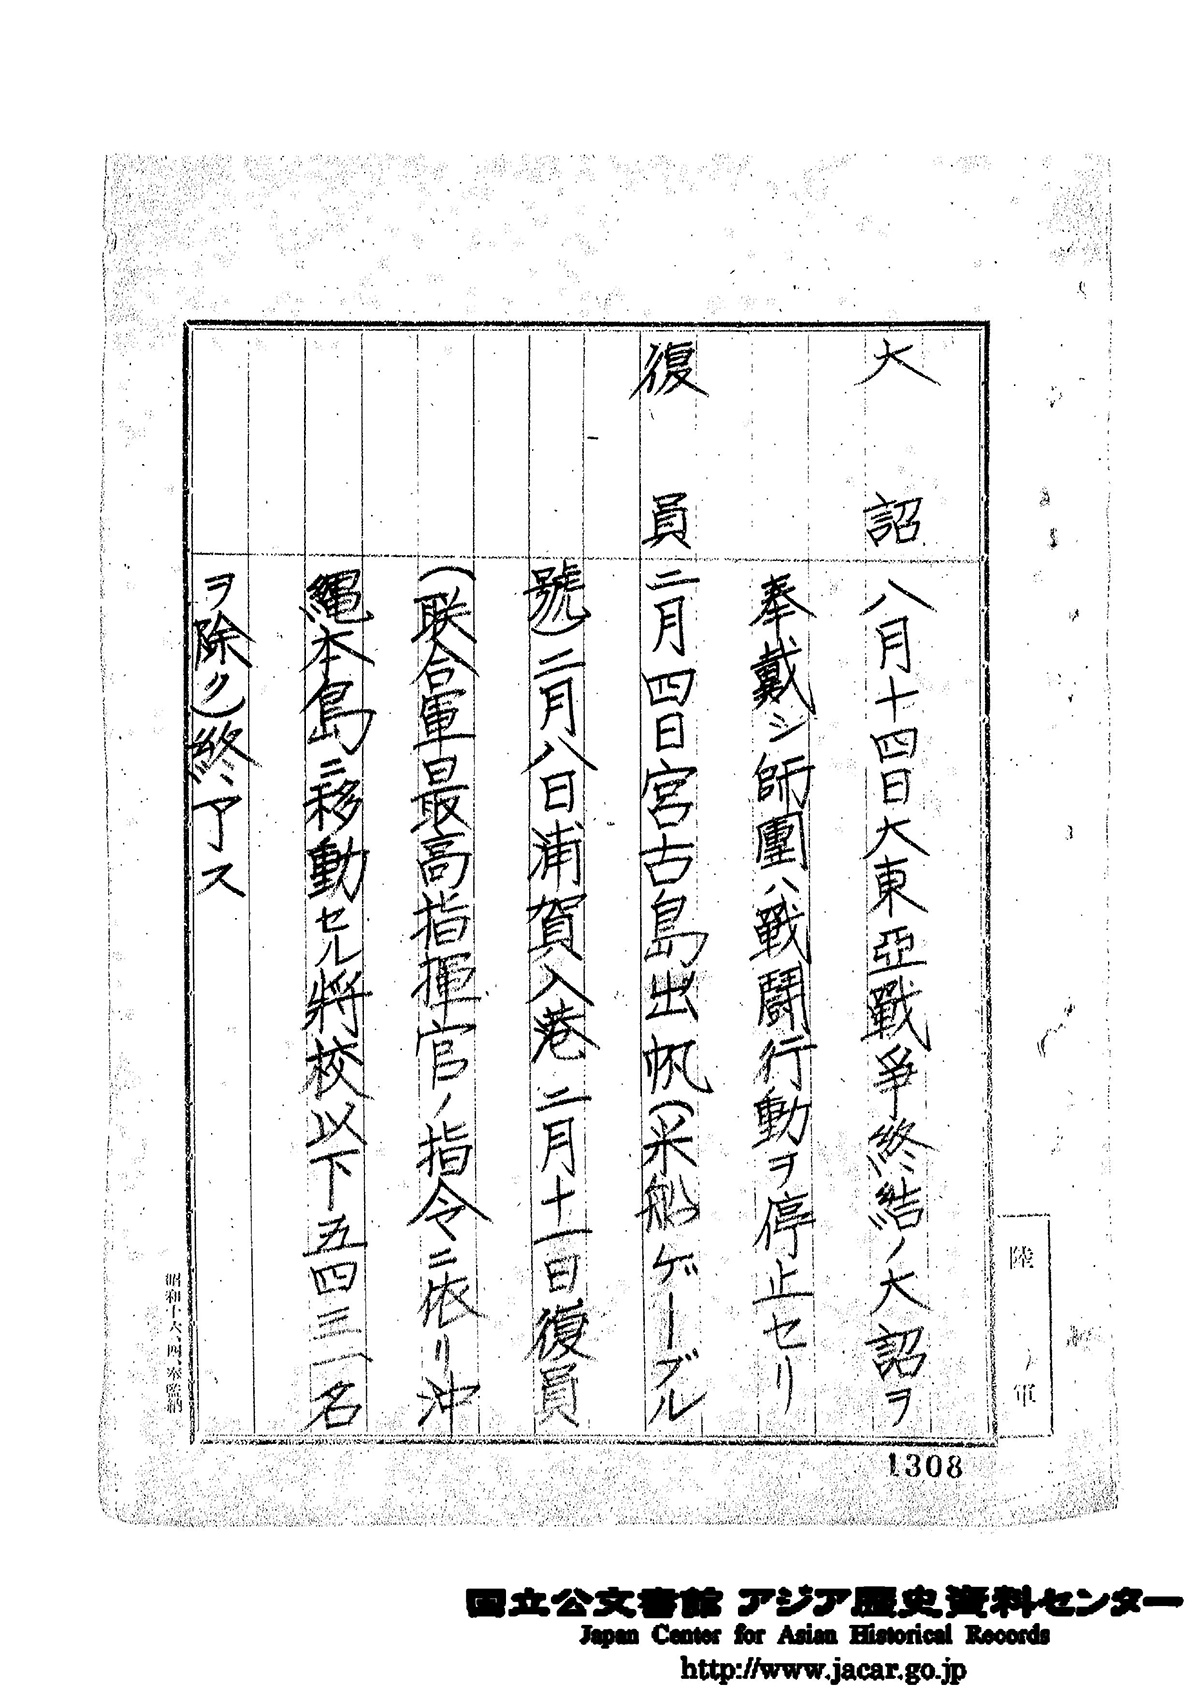 大詔 八月十四日大東亞戰爭終結ノ大詔ヲ
奉戴シ師團ハ戰鬪行動ヲ停止セリ
復員 二月四日宮古島出帆(米船ゲーブル
號)二月八日浦賀入港 二月十一日復員
(联合軍最高指揮官ノ指令ニ依リ沖
繩本島ニ移動セル將校以下五四三一名
ヲ除ク)終了ス
陸軍
1308
国立公文書館 アジア歴史資料センター
Japan Center for Asian Historical Records
http://www.jacar.go.jp